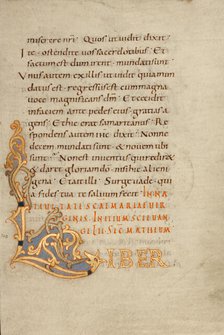 miserere nri; Quos ut vidit dixit;
Ite ostendite vos sacerdotibus; Et
factum est dum irent mundati sunt
Unus autem ex illis ut vidit quia mun
datus est regressus est cum magna
voce magnificans dm; Et cecidit
infaciem ante pedes eius gratias a
gens; Et hic erat samaritanus; Re
spondens autem ihc dixit; Nonne
decem mundati sunt & novem ubi
sunt; Non est inventus qui redir&
& daret gloriam do nisi hic alieni
gena; Et ait illi Surge vade qui
a fides tua te salvum fecit
IN NA
TIVITATE SCAE MARIAE VIR
GINIS. INITIUM SCI EVAN
GELII SEC MATHEUM
LIBER